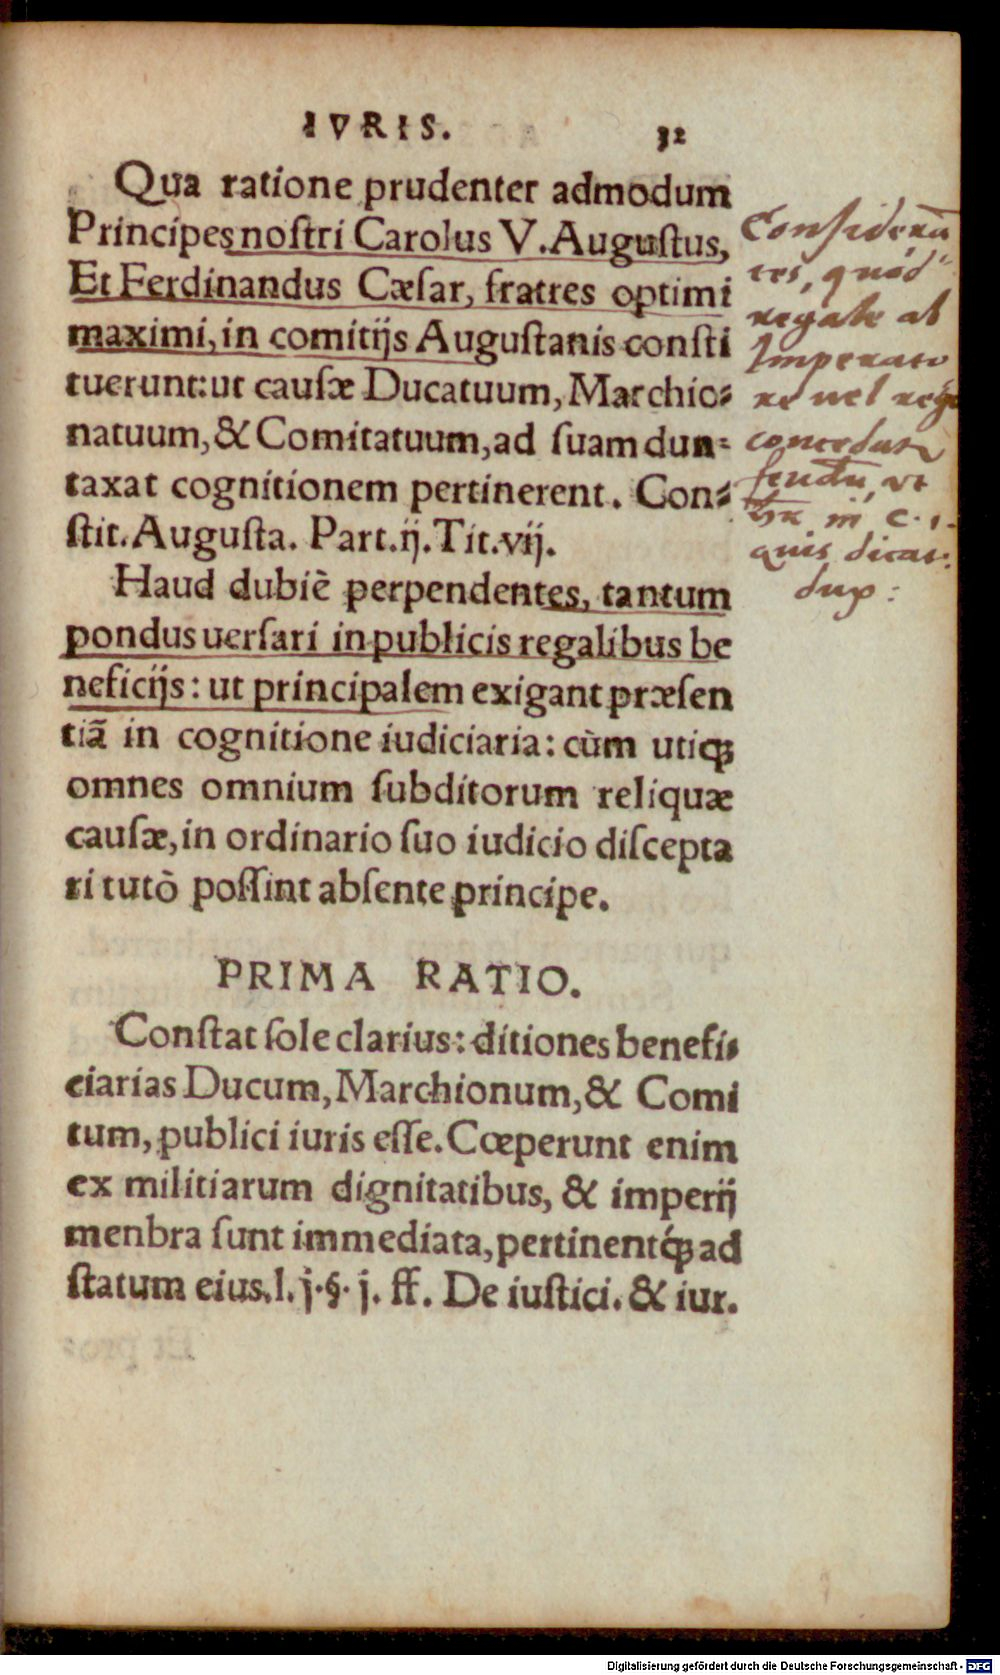 IVRIS. 32
Qua ratione prudenter admodum
Principes noſtri Carolus V. Auguſtus,
Et Ferdinandus Cæſar, fratres optimi
maximi, in comitijs Auguſtanis conſti
tuerunt: ut cauſæ Ducatuum, Marchio-
natuum, & Comitatuum, ad ſuam dun-
taxat cognitionem pertinerent. Con-
ſtit. Auguſta. Part. ij. Tit. vij.
Haud dubiè perpendentes, tantum
pondus uerſari in publicis regalibus be
neficijs: ut principalem exigant præſen
tiã in cognitione iudiciaria: cùm utiq́
omnes omnium ſubditorum reliquæ
cauſæ, in ordinario ſuo iudicio diſcepta
ri tutò poſſint abſente principe.
Conſiderã
tes, quòd
regale ab
Imperato
re uel rege
concedat
feudũ, ut
in c. 1.
quis dicat:
dux:
PRIMA RATIO.
Conſtat ſole clarius: ditiones benefi-
ciarias Ducum, Marchionum, & Comi
tum, publici iuris eſſe. Cœperunt enim
ex militiarum dignitatibus, & imperij
menbra ſunt immediata, pertinentq́ ad
ſtatum eius. l. j. §. j. ff. De iuſtici. & iur.
Digitalisierung gefördert durch die Deutsche Forschungsgemeinschaft - DFG